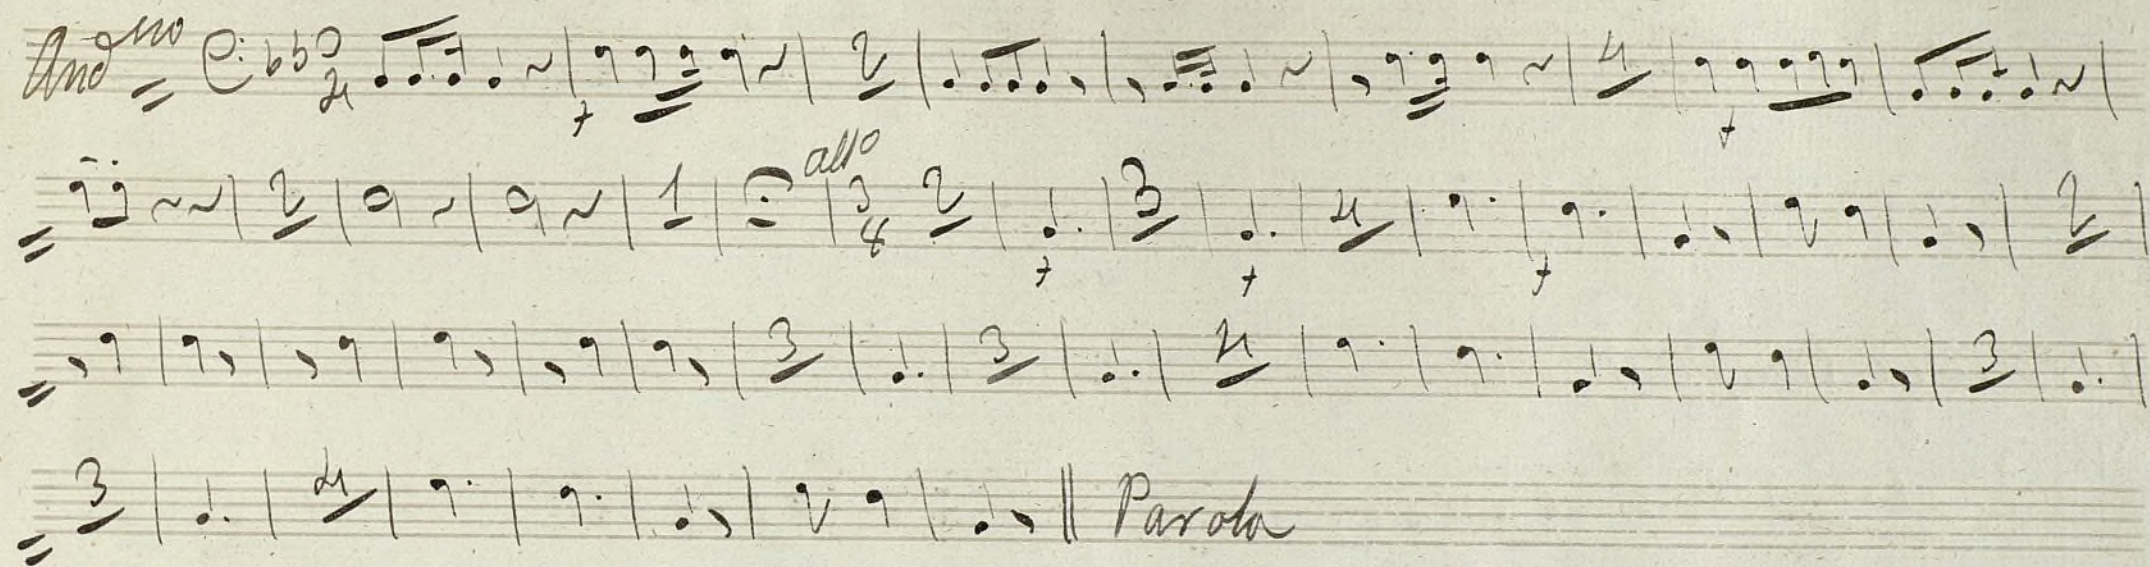 And^no 2 4
2 1 all^o 3 8 2 3 4 2
3 3 4 3
3 4 Parola